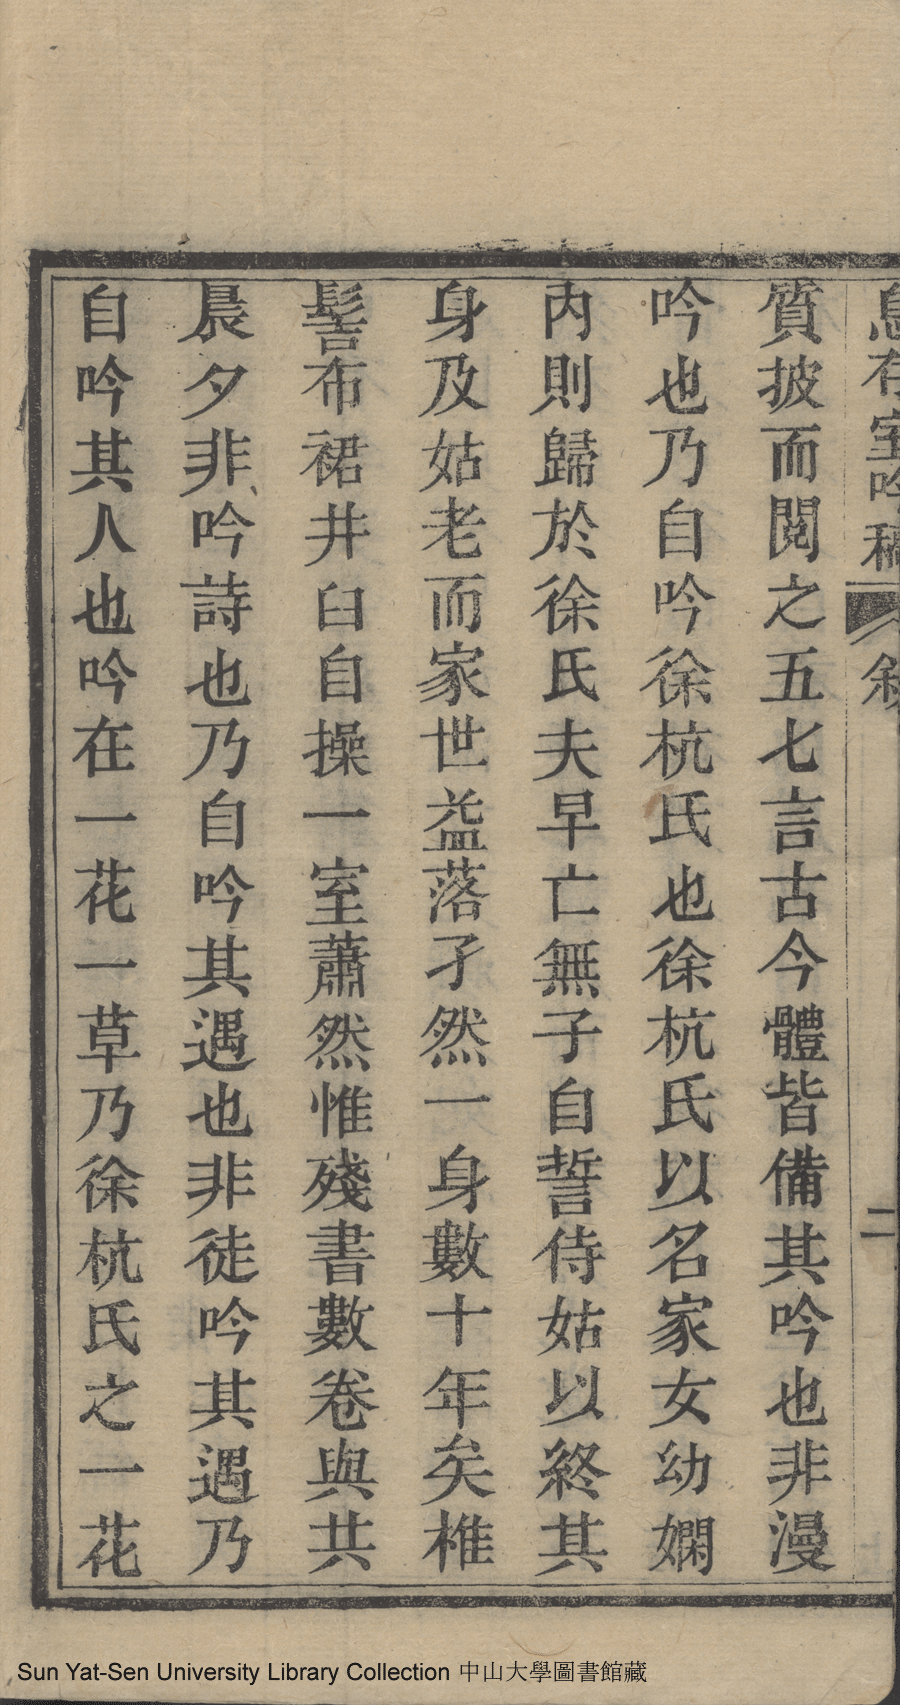 息存室吟稿 敘 二
質披而閱之五七言古今體皆備其吟也非漫
吟也乃自吟徐杭氏也徐杭氏以名家女幼嫻
內則歸於徐氏夫早亡無子自誓侍姑以終其
身及姑老而家世益落孑然一身數十年矣椎
髻布裙井臼自操一室蕭然惟殘書數卷與共
晨夕非吟詩也乃自吟其遇也非徒吟其遇乃
自吟其人也吟在一花一草乃徐杭氏之一花
Sun Yat-Sen University Library Collection 中山大學圖書館藏